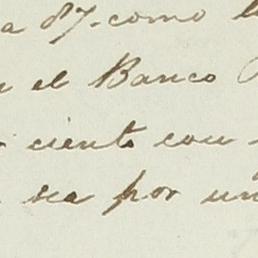 a 87. como l
n el Banco
ciento con
sea por un